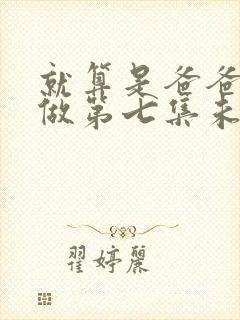 就算是爸爸
做第七集未
翟婷麗